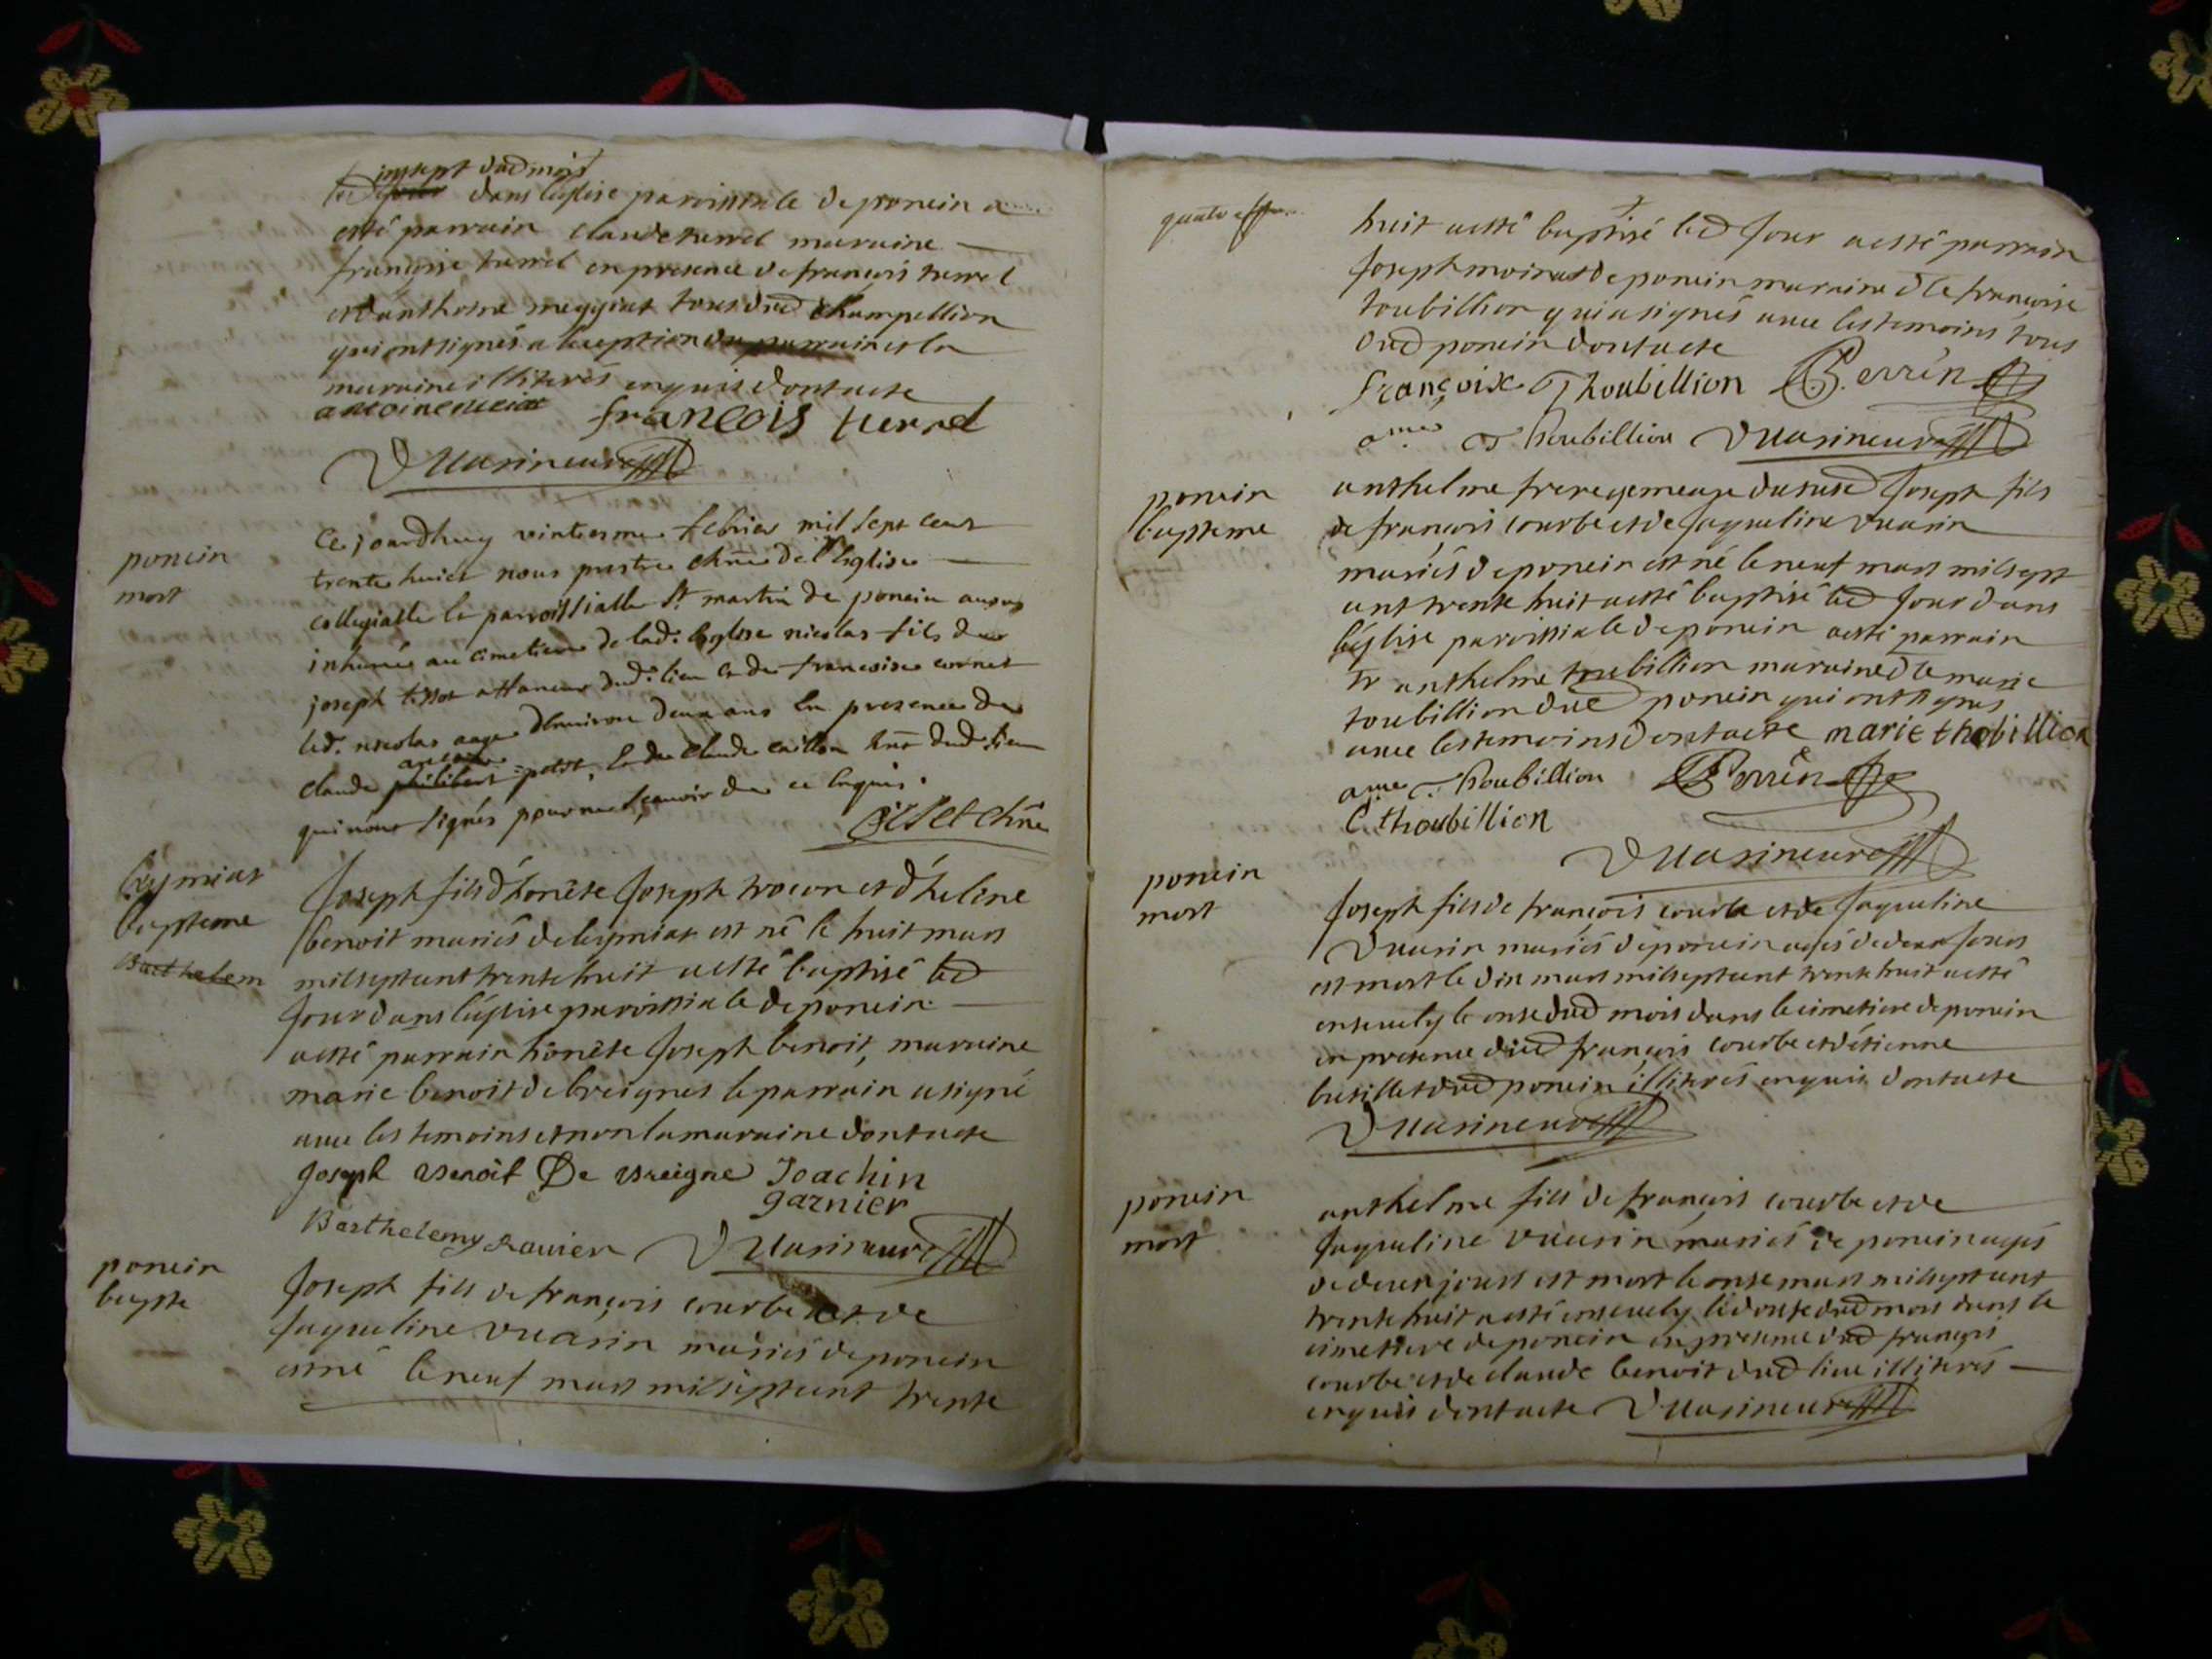 dans l'église paroissiale de poncin a
esté parrain claude turrel maraine
françoise turrel en presence de françois turrel
et d'anthoine meygiat tous dud champollion
qui ont signés a lexeption du parrain et la
maraine illiterés enquis dont acte
françois turrel
Vuarineur
poncin
mort
Ce jourdhuy vintiesme febrier mil sept cent
trente huict nous prestre chne de l'Eglise
collegialle le parroissialle St martin de poncin avons
inhumé au cimetiere de lad. Eglise nicolas fils de
joseph tissot attaneur dud. lieu et de francoise cornet
led. nicolas aagé denviron deux ans En presence de
claude petit, et de claude caillon dud. lieu
qui nont signés pour ne scavoir de ce Enquis.
chne
leymiat
bapteme
Joseph fils d'honête Joseph trocon et d'heline
benoit mariés de leymiat est né le huit mars
mil sept cent trente huit a esté baptisé led
Jour dans l'église paroissiale de poncin
a esté parrain honête Joseph benoit, maraine
marie benoit de breignes le parrain a signé
avec les temoins et non la maraine dont acte
Joseph Benoit De Breigne Joachin
garnier
Barthelemy Ravier Vuarineur
poncin
bapte
Joseph fils de françois courbe et de
Jaqueline vuarin mariés de poncin
est né le neuf mars mil sept cent trente
huit a esté baptisé led Jour a esté parrain
Joseph moirat de poncin maraine dlle françoise
toubillion qui a signés avec les temoins tous
dud poncin dont acte
françoise Thoubillion Perrin
Thoubillion Vuarineur
poncin
bapteme
anthelme frere gemeaux du susd Joseph fils
de françois courbe et de Jaqueline vuarin
mariés de poncin est né le neuf mars mil sept
cent trente huit a esté baptisé led Jour dans
l'église paroissiale de poncin a esté parrain
sr anthelme toubillion maraine dlle marie
toubillion dud poncin qui ont signés
avec les temoins dont acte marie thobillion
Thoubillion Perrin
C. thoubillion
Vuarineur
poncin
mort
Joseph fils de françois courbe et de Jaqueline
Vuarin mariés de poncin agés de deux Jours
est mort le dix mars mil sept cent trente huit a esté
ensevely le onse dud mois dans le cimetiere de poncin
en presence dud françois courbe et d'étienne
busillet dud poncin illiterés enquis dont acte
Vuarineur
poncin
mort
anthelme fils de françois courbe et de
Jaqueline vuarin mariés de poncin agés
de deux jours est mort le onse mars mil sept cent
trente huit a esté ensevely le douse dud mois dans le
cimettiere de poncin en presence dud françois
courbe et de claude benoit dud lieu illiterés
enquis dont acte Vuarineur